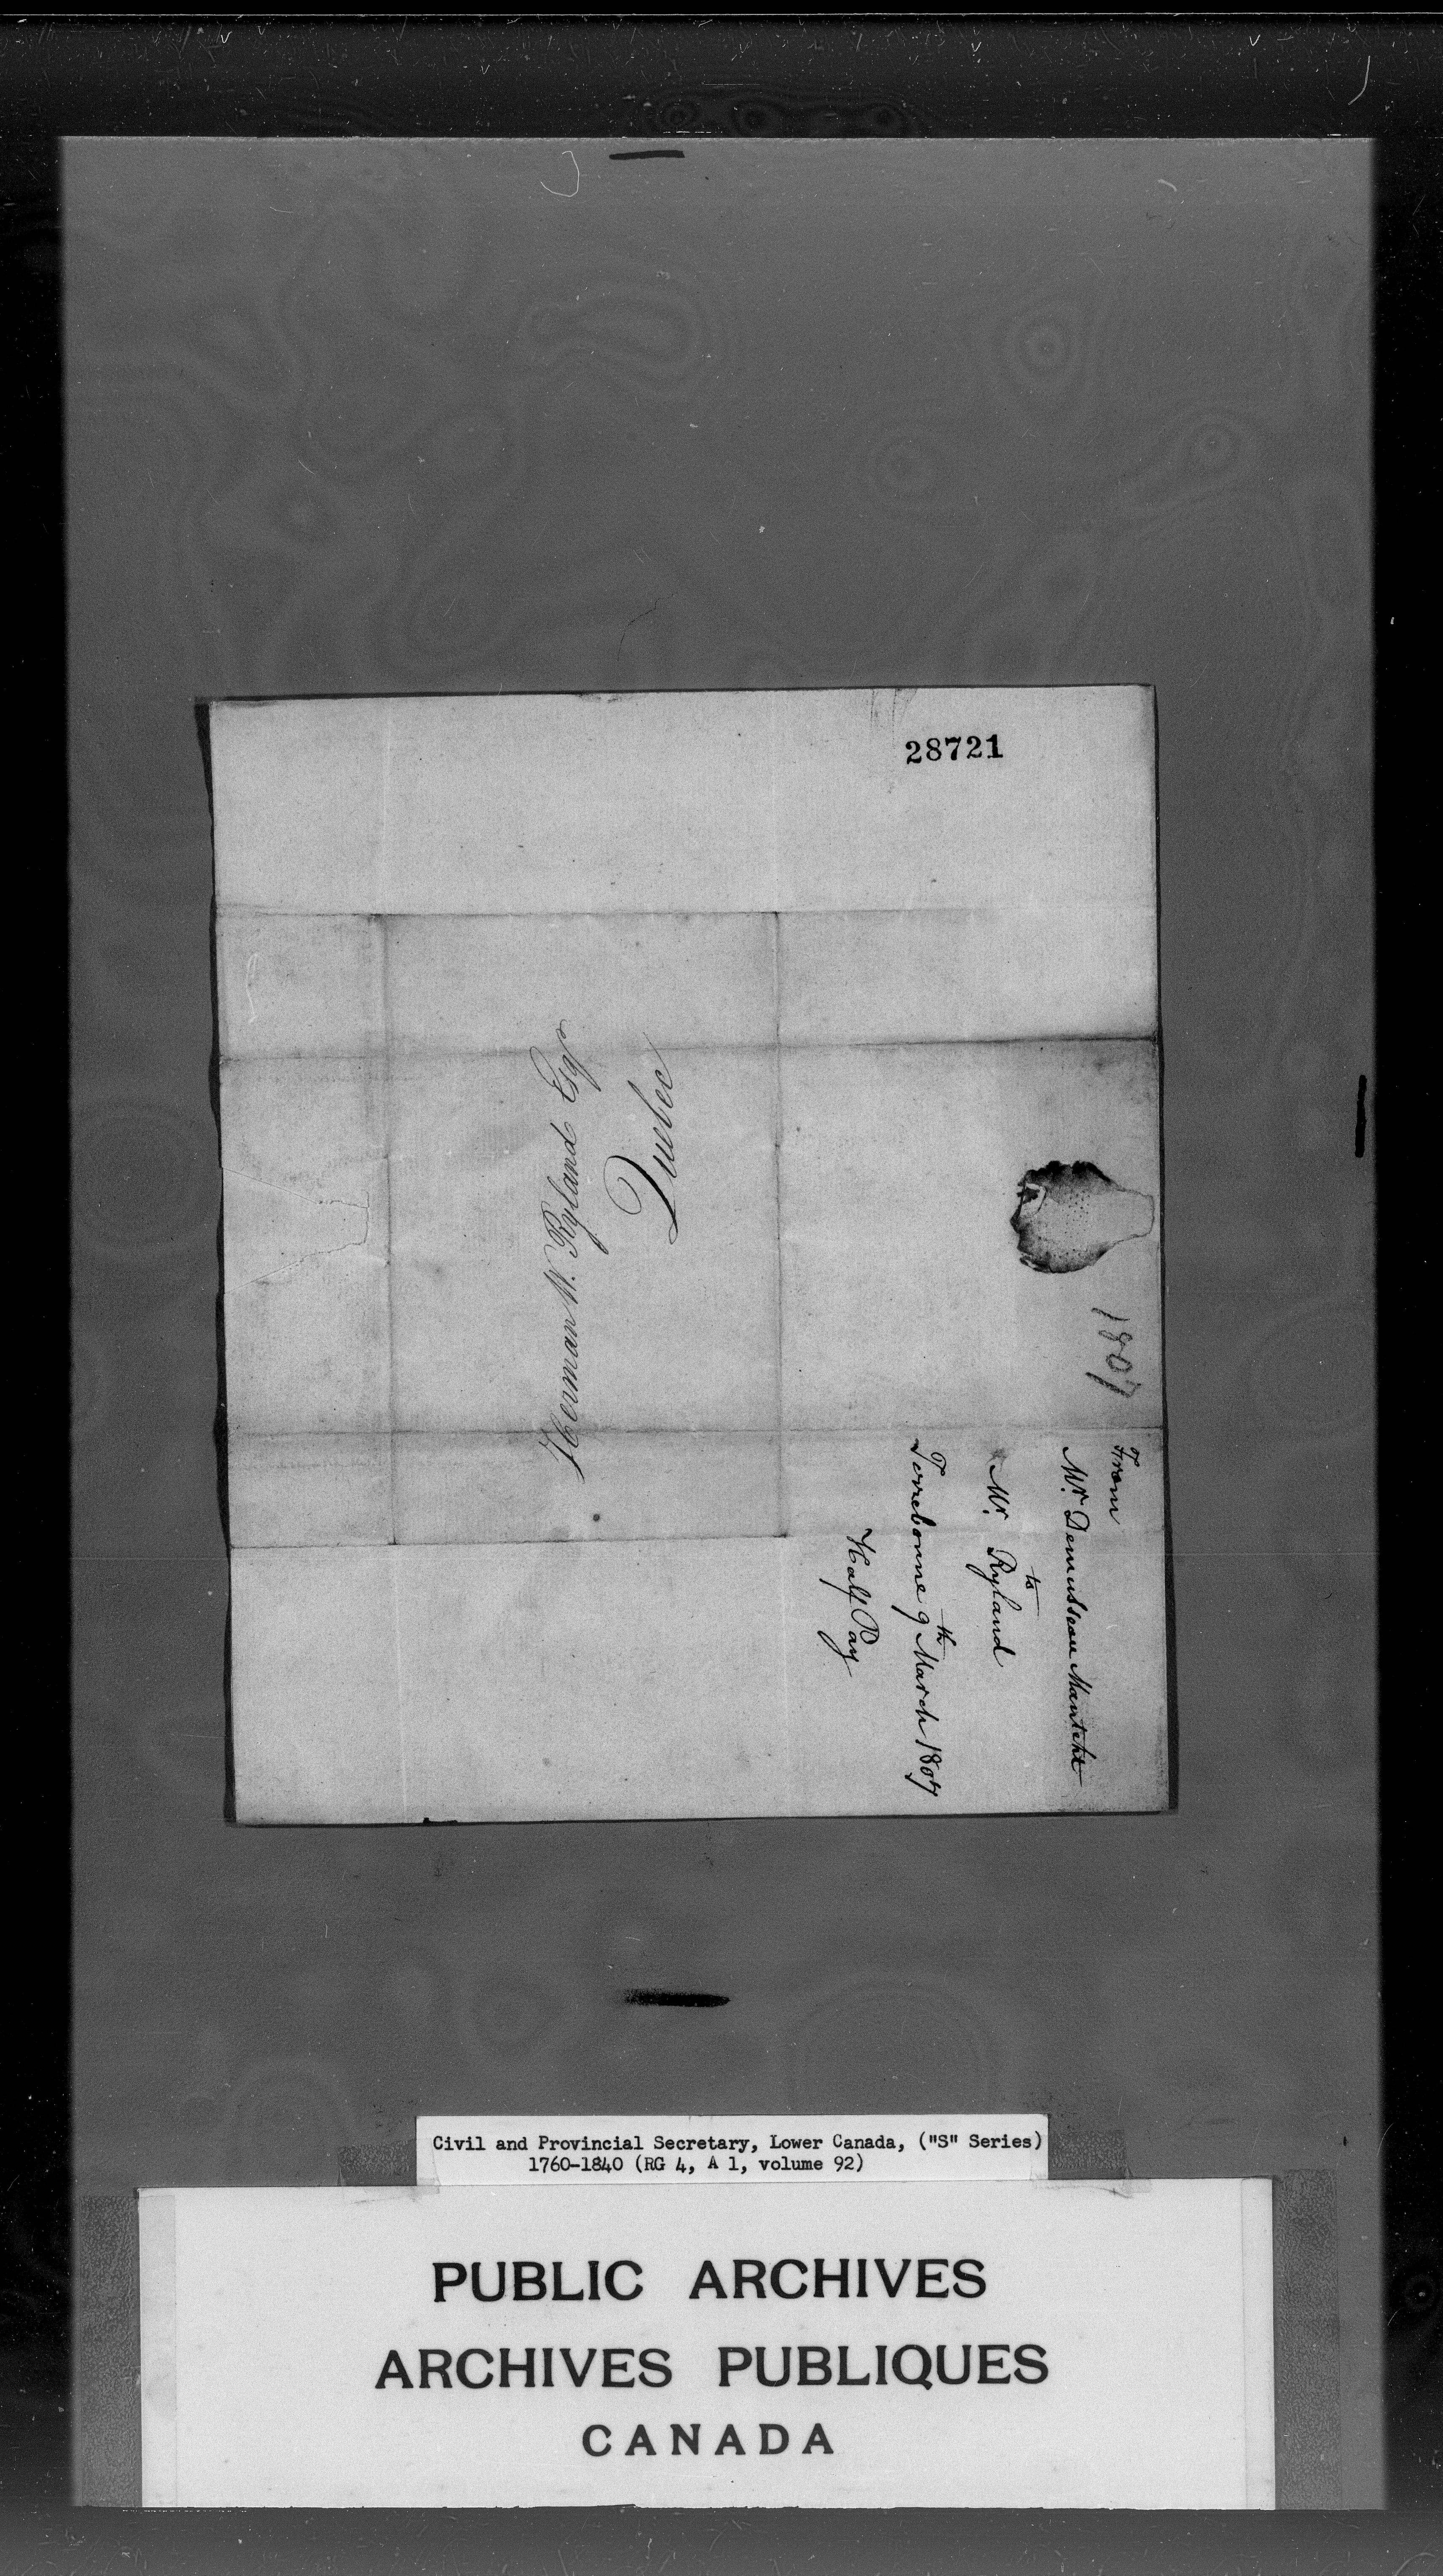 28721
Herman W. Ryland Esqr
Quebec
1807
From
Mr. Demusseau
to
Mr. Ryland
Terrebonne 9th March 1807
Half Pay
Civil and Provincial Secretary, Lower Canada, ("S" Series)
1760-1840 (RG 4, A 1, volume 92)
PUBLIC ARCHIVES
ARCHIVES PUBLIQUES
CANADA